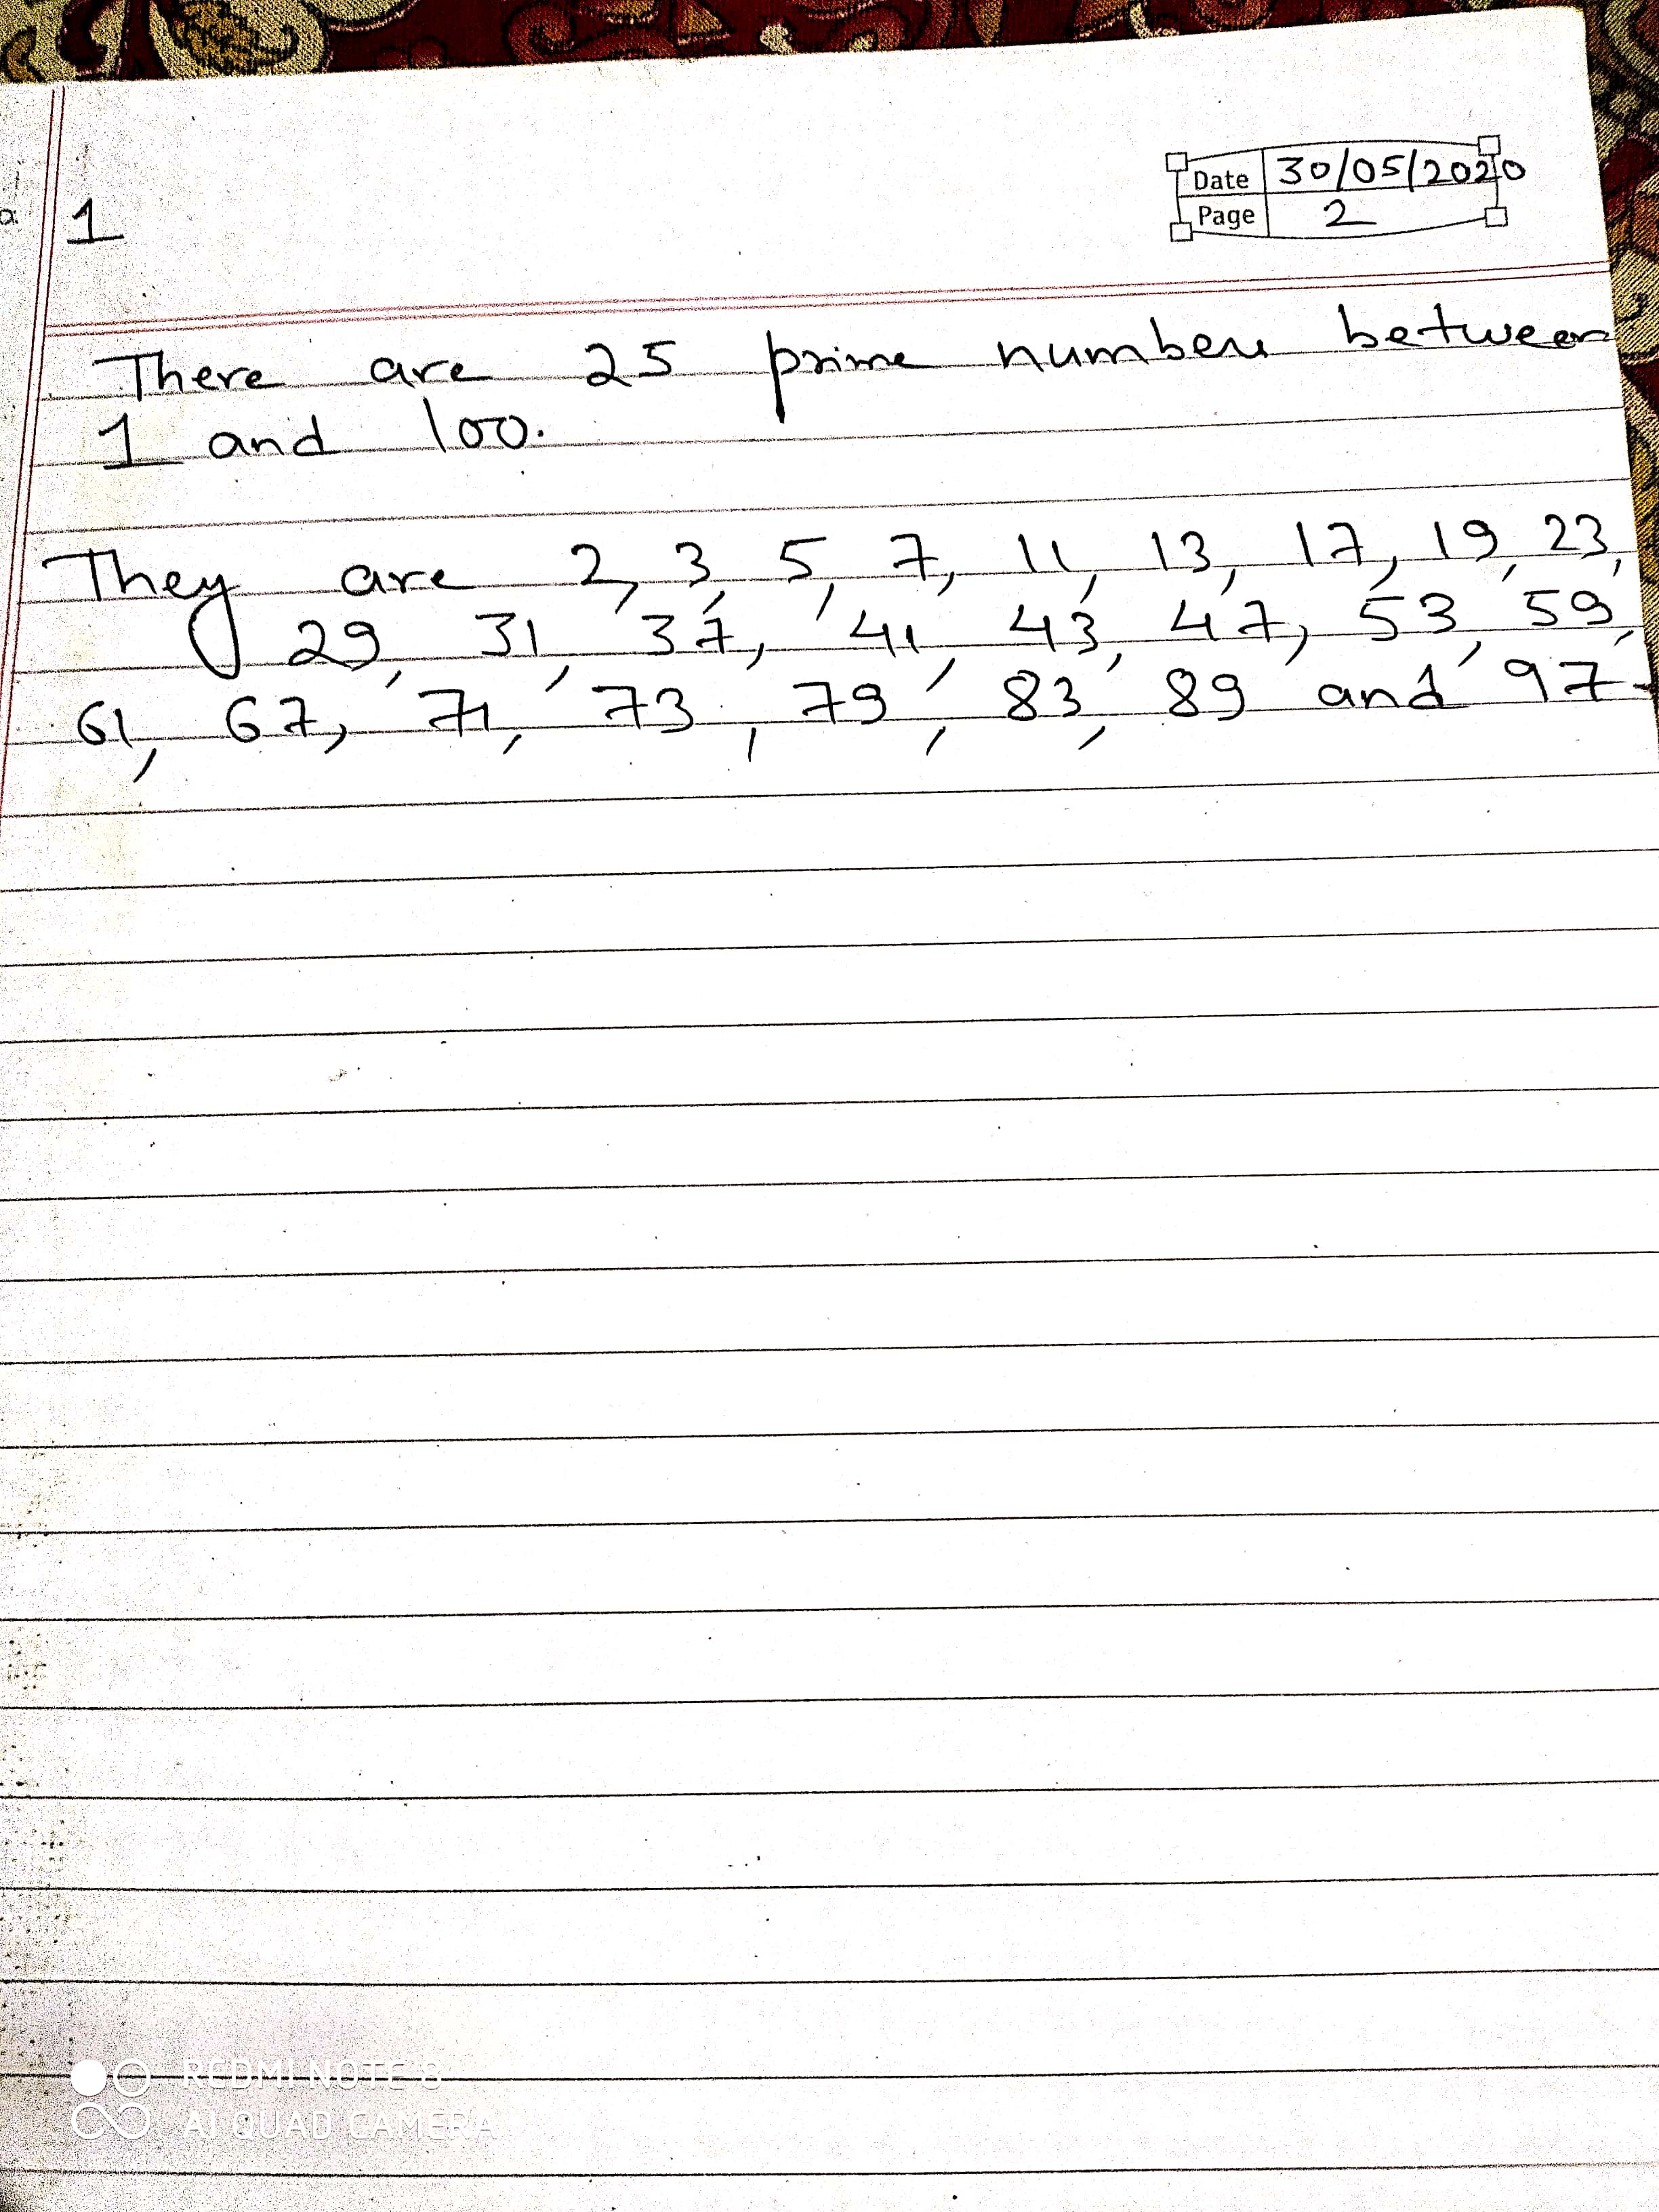 Date 30/05/2020
Page 2
1
There are 25 prime numbers between
1 and 100.
They are 2, 3, 5, 7, 11, 13, 17, 19, 23,
29, 31, 37, 41, 43, 47, 53, 59,
61, 67, 71, 73, 79, 83, 89 and 97.
REDMI NOTE 8
AI QUAD CAMERA